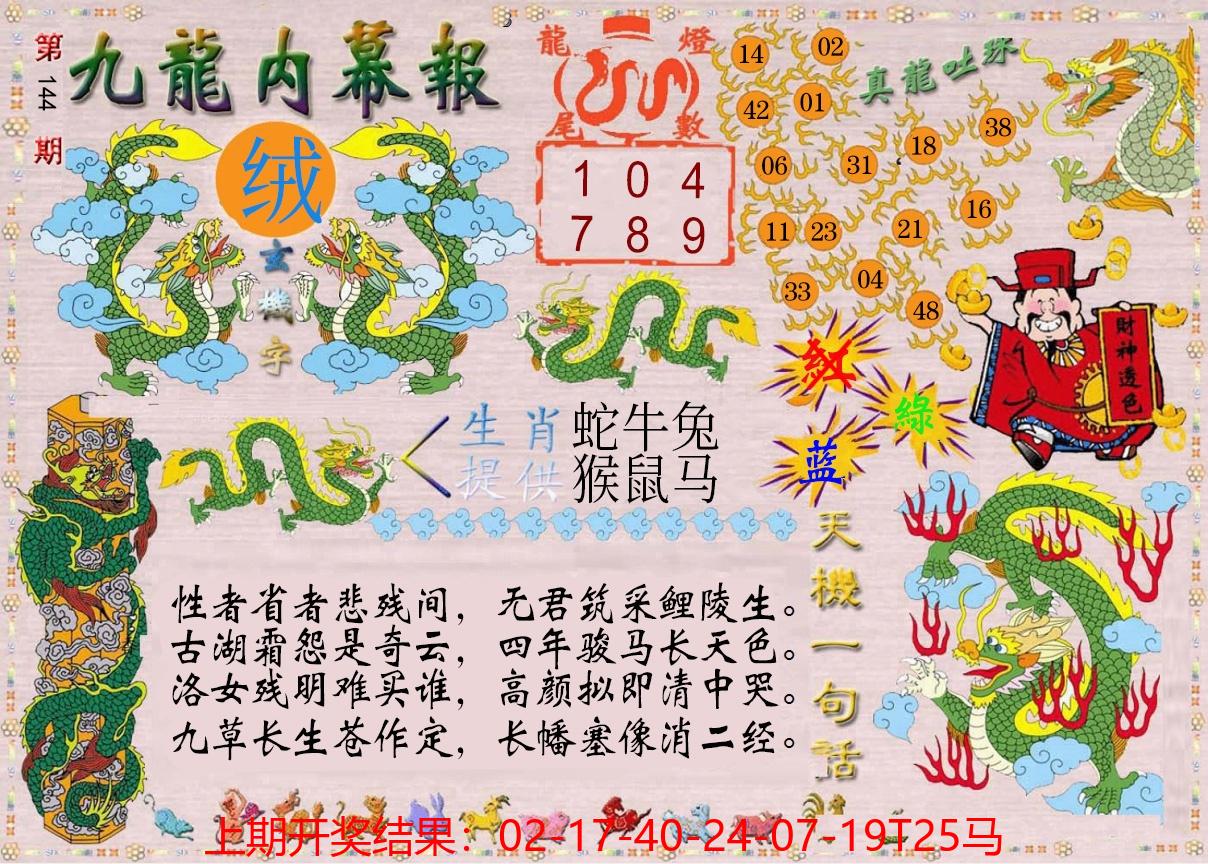 第144期
九龍内幕報
绒
玄機字
龍燈尾數
1 0 4
7 8 9
真龍吐珠
14
02
42
01
38
18
06
31
16
11
23
21
04
33
48
財神透色
红
綠
蓝
生肖提供
蛇牛兔
猴鼠马
天機一句話
性者省者悲残间，无君筑采鲤陵生。
古湖霜怨是奇云，四年骏马长天色。
洛女残明难买谁，高颜拟即清中哭。
九草长生苍作定，长幡塞像消二经。
上期开奖结果：02-17-40-24-07-19T25马